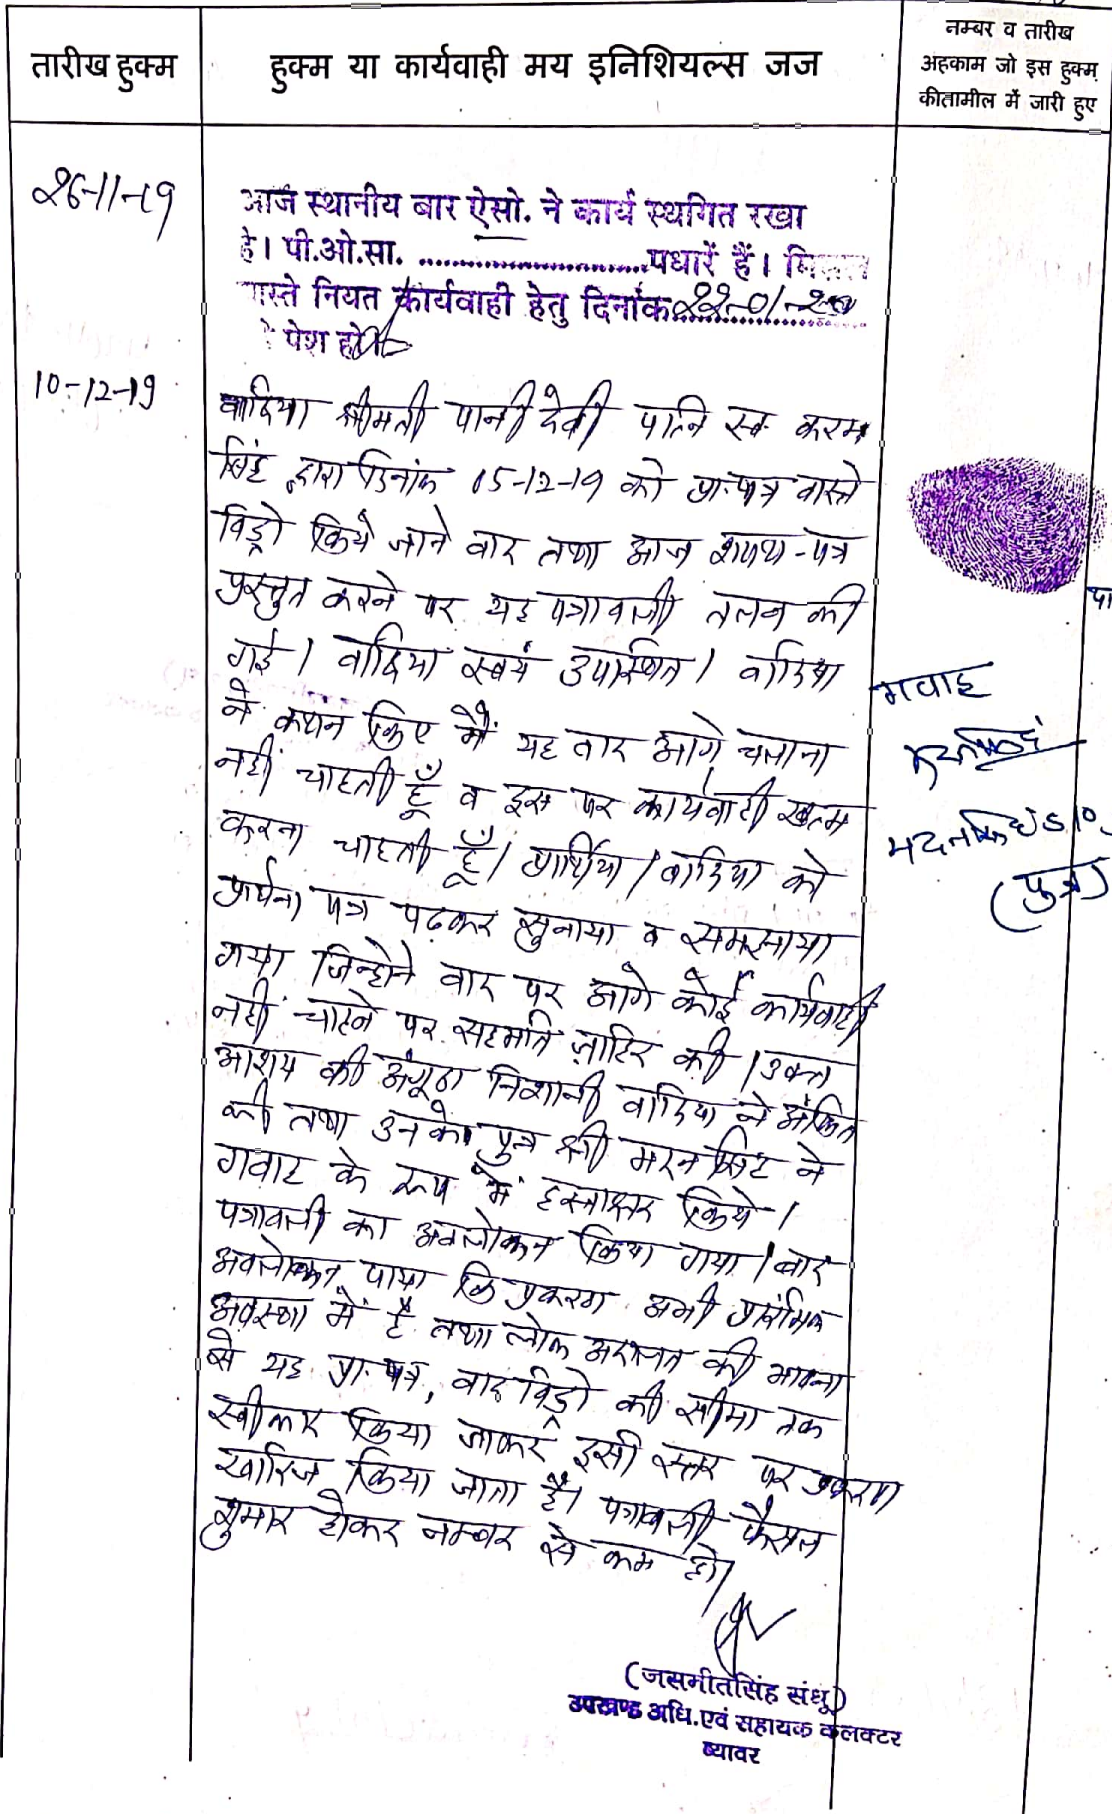 नम्बर व तारीख
तारीख हुक्म
हुक्म या कार्यवाही मय इनिशियल्स जज
अहकाम जो इस हुक्म
कीतामील में जारी हुए
26-11-19
आज स्थानीय बार ऐसो. ने कार्य स्थगित रखा
है। पी.ओ.सा. ........................पधारें हैं। मिसल
वास्ते नियत कार्यवाही हेतु दिनांक 22-01-20
पेश हो
10-12-19
वादिया श्रीमती पानी देवी पत्नि स्व करम
सिंह द्वारा दिनांक 05-12-19 को प्रा.पत्र वास्ते
विड्रो किये जाने वाद तथा आज शपथ-पत्र
प्रस्तुत करने पर यह पत्रावली तलब की
गई। वादिया स्वयं उपस्थित। वादिया
ने कथन किए मैं यह वाद आगे चलाना
नहीं चाहती हूँ व इस पर कार्यवाही खत्म
करना चाहती हूँ। प्रार्थिया/वादिया को
प्रार्थना पत्र पढ़कर सुनाया व समझाया
गया जिन्होने वाद पर आगे कोई कार्यवाही
नहीं चाहने पर सहमति ज़ाहिर की। उक्त
आशय की अंगूठा निशानी वादिया ने अंकित
की तथा उनके पुत्र श्री मदन सिंह ने
गवाह के रूप में हस्ताक्षर किये।
पत्रावली का अवलोकन किया गया। बाद
अवलोकन पाया कि प्रकरण अभी प्रारंभिक
अवस्था में है तथा लोक अदालत की भावना
से यह प्रा.पत्र, वाद विड्रो की सीमा तक
स्वीकार किया जाकर इसी स्तर पर प्रकरण
खारिज किया जाता है। पत्रावली फैसल
शुमार होकर नम्बर से कम हो।
गवाह
मदनसिंह S/O
(पुत्र)
(जसमीतसिंह संधू)
उपखण्ड अधि.एवं सहायक कलक्टर
ब्यावर